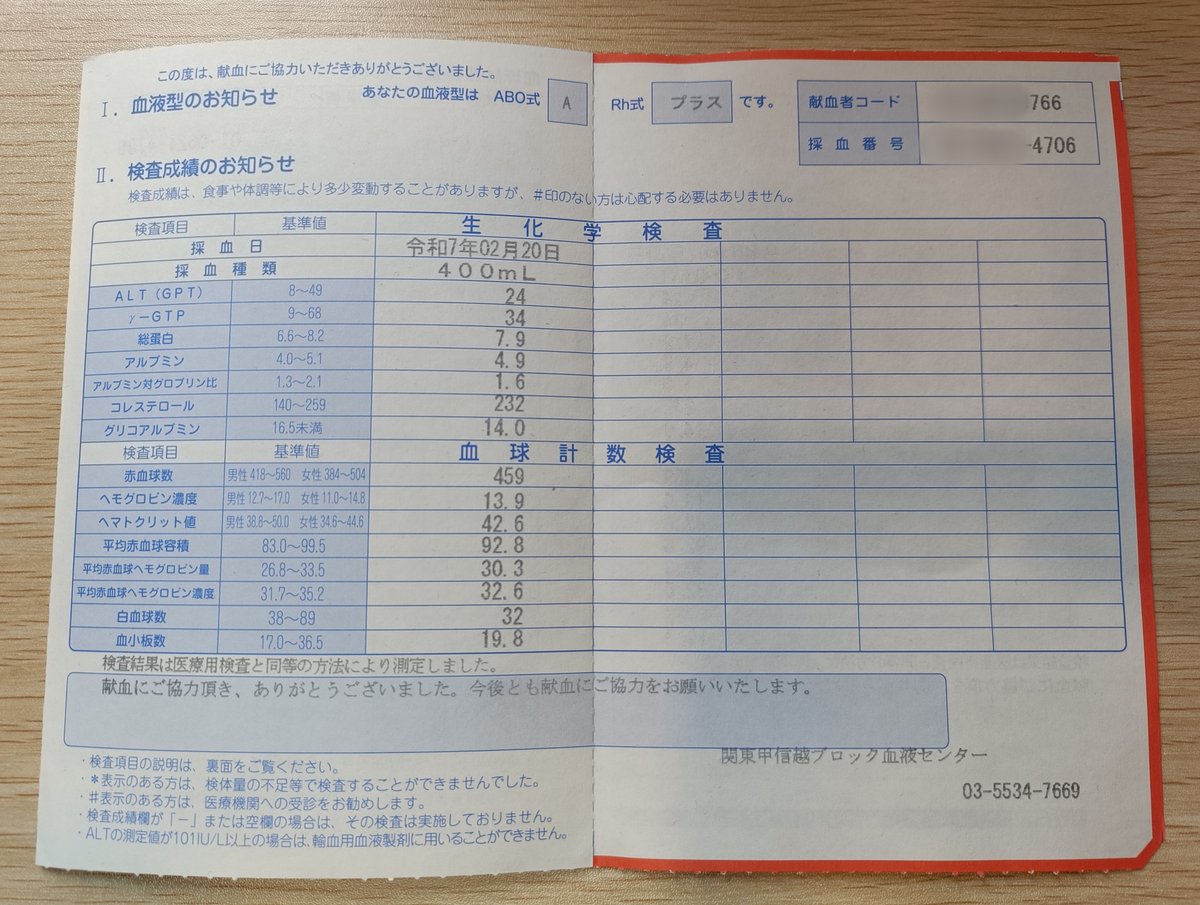 この度は、献血にご協力いただきありがとうございました。
Ⅰ. 血液型のお知らせ あなたの血液型は ABO式 A Rh式 プラス です。
献血者コード 766
採血番号 -4706
Ⅱ. 検査成績のお知らせ
検査成績は、食事や体調等により多少変動することがありますが、#印のない方は心配する必要はありません。
検査項目 基準値 生化学検査
採血日 令和7年02月20日
採血種類 400mL
ALT(GPT) 8~49 24
γ-GTP 9~68 34
総蛋白 6.6~8.2 7.9
アルブミン 4.0~5.1 4.9
アルブミン対グロブリン比 1.3~2.1 1.6
コレステロール 140~259 232
グリコアルブミン 16.5未満 14.0
検査項目 基準値 血球計数検査
赤血球数 男性418~560 女性384~504 459
ヘモグロビン濃度 男性12.7~17.0 女性11.0~14.8 13.9
ヘマトクリット値 男性38.8~50.0 女性34.6~44.6 42.6
平均赤血球容積 83.0~99.5 92.8
平均赤血球ヘモグロビン量 26.8~33.5 30.3
平均赤血球ヘモグロビン濃度 31.7~35.2 32.6
白血球数 38~89 32
血小板数 17.0~36.5 19.8
検査結果は医療用検査と同等の方法により測定しました。
献血にご協力頂き、ありがとうございました。今後とも献血にご協力をお願いいたします。
関東甲信越ブロック血液センター
03-5534-7669
・検査項目の説明は、裏面をご覧ください。
・*表示のある方は、検体量の不足等で検査することができませんでした。
・#表示のある方は、医療機関への受診をお勧めします。
・検査成績欄が「-」または空欄の場合は、その検査は実施しておりません。
・ALTの測定値が101IU/L以上の場合は、輸血用血液製剤に用いることができません。